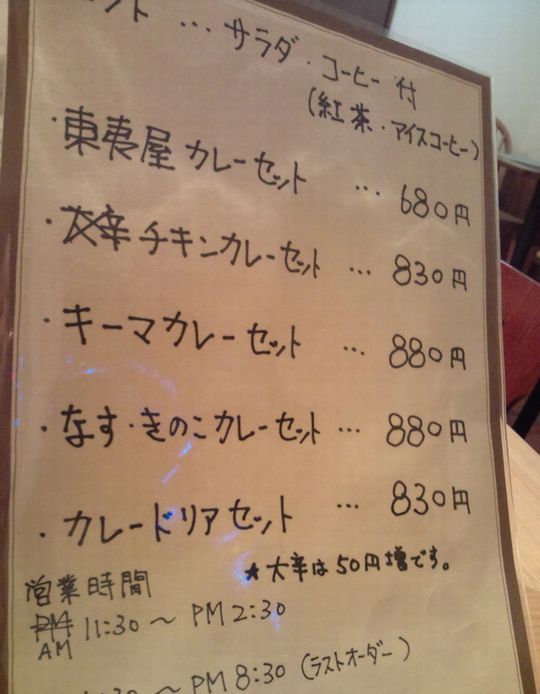 ント … サラダ・コーヒー付
(紅茶・アイスコーヒー)
・東夷屋カレーセット … 680円
・大辛チキンカレーセット … 830円
・キーマカレーセット … 880円
・なす・きのこカレーセット … 880円
・カレードリアセット … 830円
★大辛は50円増です。
営業時間
PM 11:30 〜 PM 2:30
AM
:30 〜 PM 8:30 (ラストオーダー)